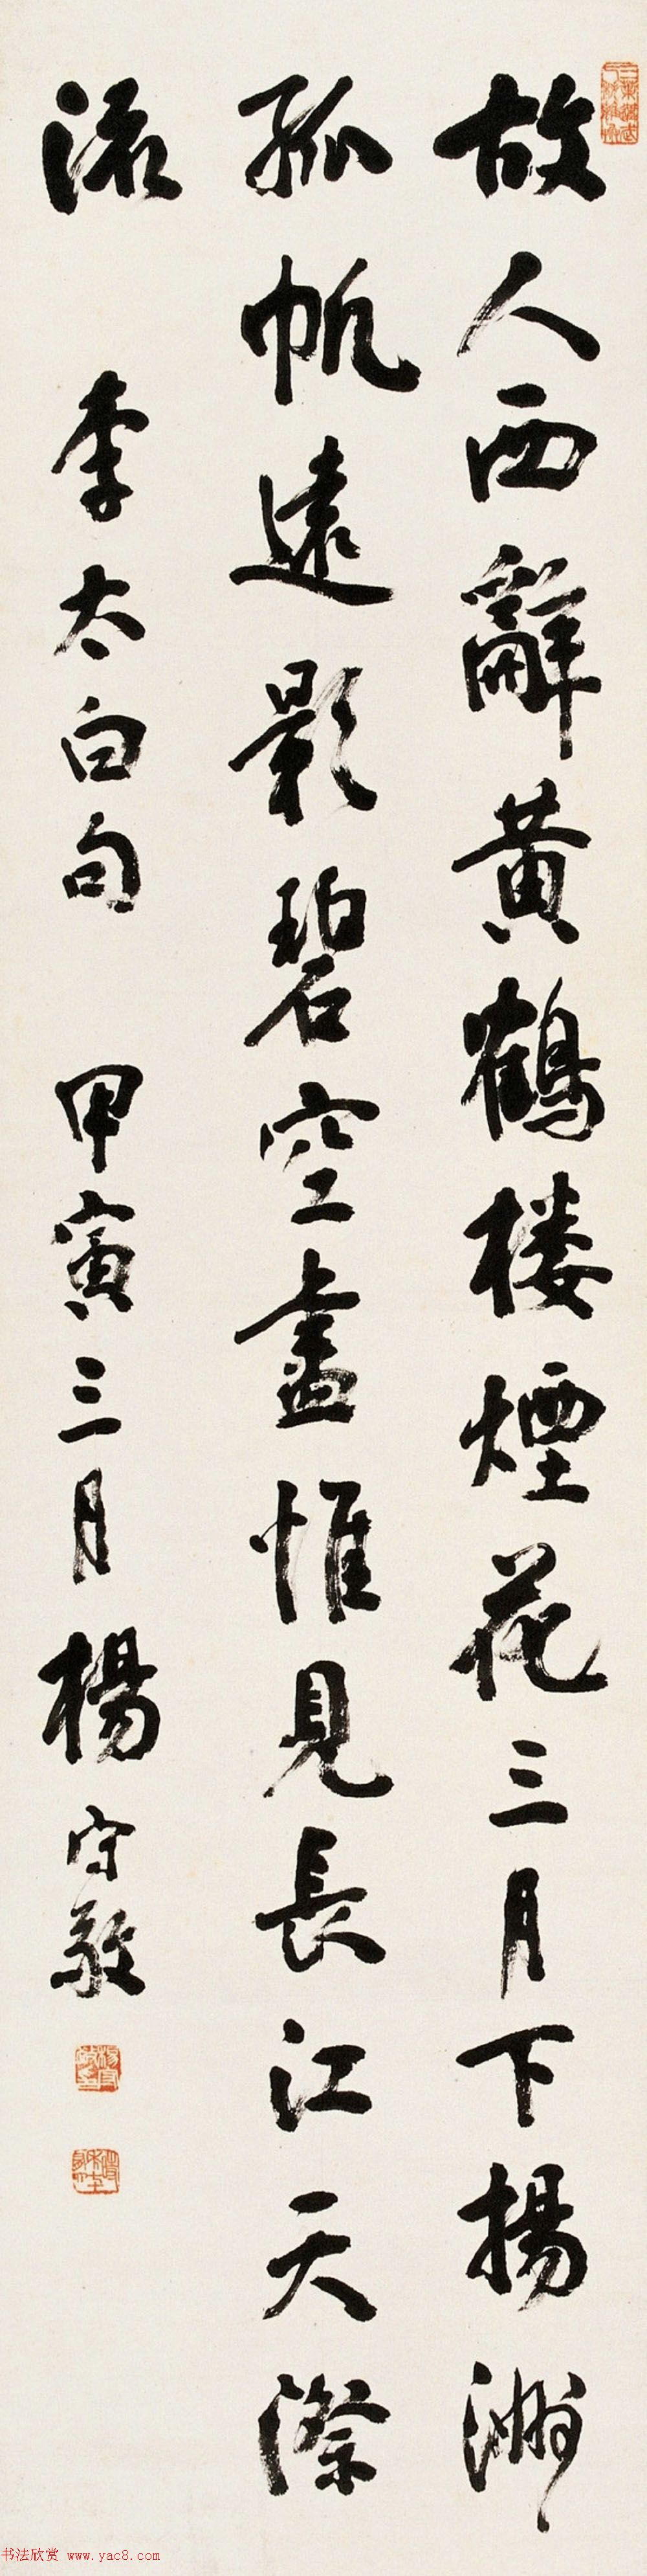 故人西辭黄鶴楼煙花三月下揚洲
孤帆遠影碧空盡惟見長江天際
流 李太白句 甲寅三月楊守敬
书法欣赏 www.yac8.com